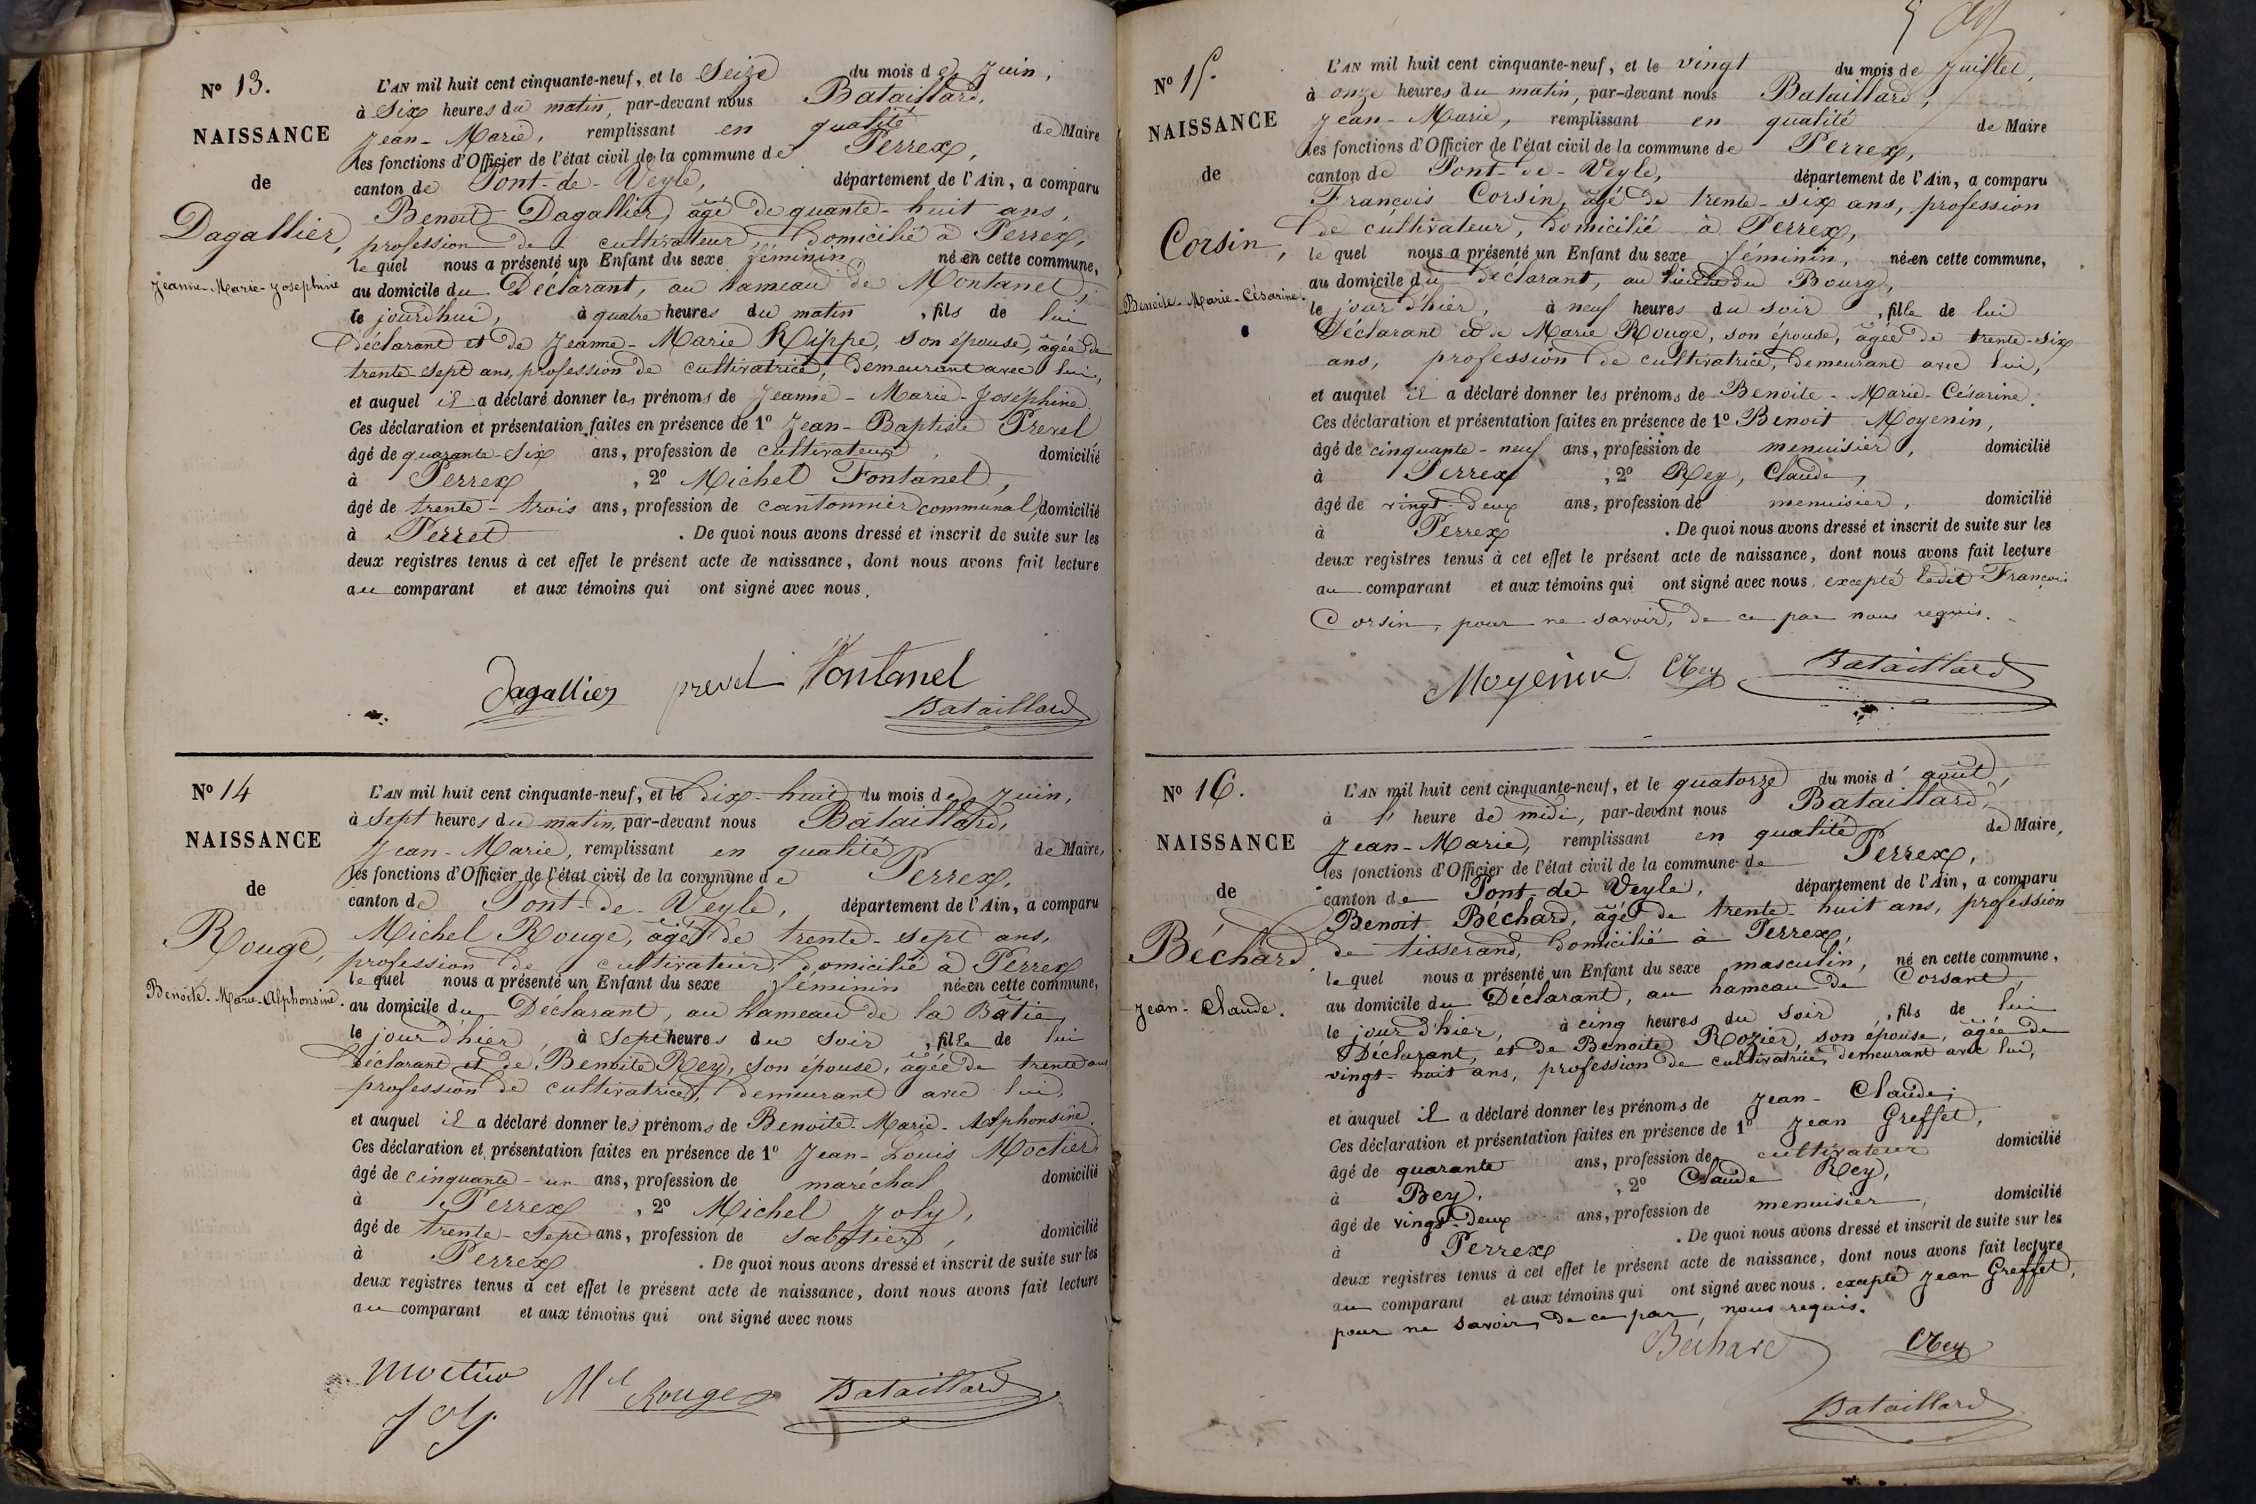 N° 13.
NAISSANCE
de
Dagallier,
Jeanne-Marie-Josephine
L'AN mil huit cent cinquante-neuf, et le Seize du mois de Juin,
à Six heures du matin, par-devant nous Bataillard,
Jean-Marie, remplissant en qualité de Maire
les fonctions d'Officier de l'état civil de la commune de Perrex,
canton de Pont-de-Veyle, département de l'Ain, a comparu
Benoit Dagallier, âgé de quante-huit ans,
profession de cultivateur, domicilié à Perrex,
lequel nous a présenté un Enfant du sexe féminin, née en cette commune,
au domicile du Déclarant, au hameau de Montanet,
le jourdhui, à quatre heures du matin, fils de lui
déclarant et de Jeanne-Marie Rippe, son épouse, âgée de
trente-sept ans, profession de cultivatrice, demeurant avec lui,
et auquel il a déclaré donner les prénoms de Jeanne-Marie-Joséphine.
Ces déclaration et présentation faites en présence de 1° Jean-Baptiste Prevel
âgé de quarante-six ans, profession de cultivateur, domicilié
à Perrex, 2° Michel Fontanel,
âgé de trente-trois ans, profession de cantonnier communal, domicilié
à Perret. De quoi nous avons dressé et inscrit de suite sur les
deux registres tenus à cet effet le présent acte de naissance, dont nous avons fait lecture
au comparant et aux témoins qui ont signé avec nous.
Dagallier prevel Fontanel
Bataillard
N° 14
NAISSANCE
de
Rouge,
Benoite-Marie-Alphonsine.
L'AN mil huit cent cinquante-neuf, et le dix-huit du mois de Juin,
à sept heures du matin, par-devant nous Bataillard,
Jean-Marie, remplissant en qualité de Maire,
les fonctions d'Officier de l'état civil de la commune de Perrex,
canton de Pont-de-Veyle, département de l'Ain, a comparu
Michel Rouge, âgé de trente-sept ans,
profession de cultivateur, domicilié à Perrex
lequel nous a présenté un Enfant du sexe féminin née en cette commune,
au domicile du Déclarant, au hameau de la Bâtie,
le jour d'hier, à sept heures du soir, fille de lui
Déclarant et de Benoite Rey, son épouse, âgée de trente ans
profession de cultivatrice, demeurant avec lui,
et auquel il a déclaré donner les prénoms de Benoite-Marie-Alphonsine.
Ces déclaration et présentation faites en présence de 1° Jean-Louis Moctier
âgé de cinquante-un ans, profession de maréchal domicilié
à Perrex, 2° Michel Joly,
âgé de trente-sept ans, profession de sabotier, domicilié
à Perrex. De quoi nous avons dressé et inscrit de suite sur les
deux registres tenus à cet effet le présent acte de naissance, dont nous avons fait lecture
au comparant et aux témoins qui ont signé avec nous
Moctier Mel Rouge Bataillard
Joly
N° 15.
NAISSANCE
de
Corsin,
Benoite-Marie-Césarine.
L'AN mil huit cent cinquante-neuf, et le vingt du mois de Juillet,
à onze heures du matin, par-devant nous Bataillard,
Jean-Marie, remplissant en qualité de Maire
les fonctions d'Officier de l'état civil de la commune de Perrex,
canton de Pont-de-Veyle, département de l'Ain, a comparu
François Corsin, âgé de trente-six ans, profession
de cultivateur, domicilié à Perrex,
lequel nous a présenté un Enfant du sexe féminin, née en cette commune,
au domicile du déclarant, au du Bourg,
le jour d'hier, à neuf heures du soir, fille de lui
Déclarant et de Marie Rouge, son épouse, âgée de trente-six
ans, profession de cultivatrice, demeurant avec lui,
et auquel il a déclaré donner les prénoms de Benoite-Marie-Césarine.
Ces déclaration et présentation faites en présence de 1° Benoit Moyenin,
âgé de cinquante-neuf ans, profession de menuisier, domicilié
à Perrex, 2° Rey, Claude,
âgé de vingt-deux ans, profession de menuisier, domicilié
à Perrex. De quoi nous avons dressé et inscrit de suite sur les
deux registres tenus à cet effet le présent acte de naissance, dont nous avons fait lecture
au comparant et aux témoins qui ont signé avec nous. excepté ledit François
Corsin, pour ne savoir, de ce par nous requis.
Moyenin Rey Bataillard
N° 16.
NAISSANCE
de
Béchard
Jean-Claude.
L'AN mil huit cent cinquante-neuf, et le quatorze du mois d'août,
à l' heure de midi, par-devant nous Bataillard,
Jean-Marie, remplissant en qualité de Maire,
les fonctions d'Officier de l'état civil de la commune de Perrex,
canton de Pont-de-Veyle, département de l'Ain, a comparu
Benoit Béchard, âgé de trente-huit ans, profession
de tisserand, domicilié à Perrex,
lequel nous a présenté un Enfant du sexe masculin, né en cette commune,
au domicile du Déclarant, au hameau de Corsant,
le jour d'hier, à cinq heures du soir, fils de lui
Déclarant, et de Benoite Rozier, son épouse, âgée de
vingt-huit ans, profession de cultivatrice, demeurant avec lui,
et auquel il a déclaré donner les prénoms de Jean-Claude;
Ces déclaration et présentation faites en présence de 1° Jean Greffet,
âgé de quarante ans, profession de cultivateur domicilié
à Bey, 2° Claude Rey,
âgé de vingt-deux ans, profession de menuisier, domicilié
à Perrex. De quoi nous avons dressé et inscrit de suite sur les
deux registres tenus à cet effet le présent acte de naissance, dont nous avons fait lecture
au comparant et aux témoins qui ont signé avec nous. excepté Jean Greffet,
pour ne savoir, de ce par, nous requis.
Béchard Rey
Bataillard